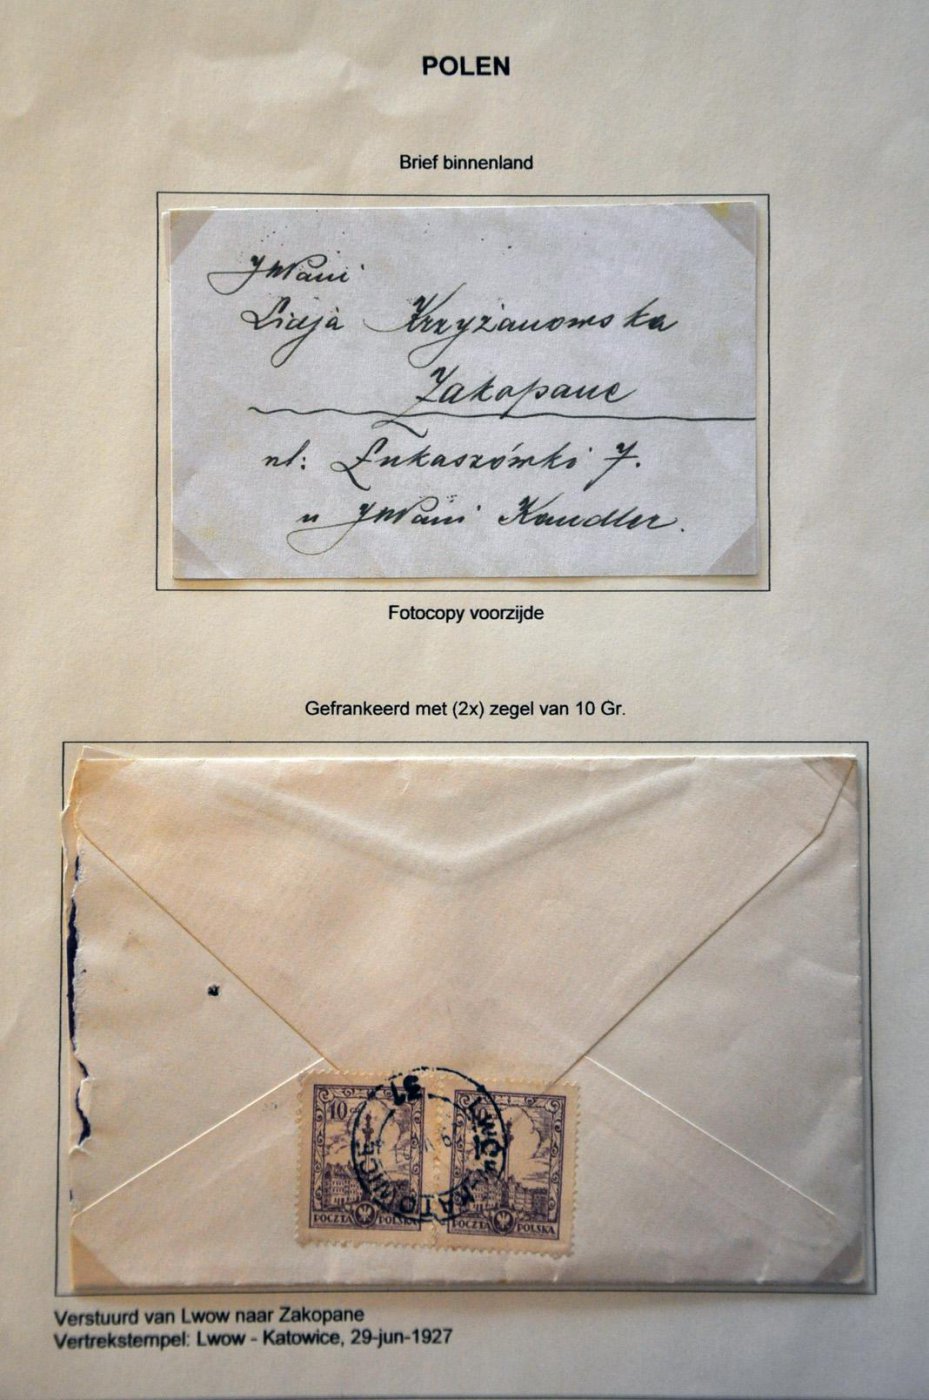 POLEN
Brief binnenland
JWPani
Lidja Krzyżanowska
Zakopane
ul: Łukaszówki 7.
u JWPani Kandler.
Fotocopy voorzijde
Gefrankeerd met (2x) zegel van 10 Gr.
10
POCZTA POLSKA
10
POCZTA POLSKA
LWÓW-KATOWICE
31
Verstuurd van Lwow naar Zakopane
Vertrekstempel: Lwow - Katowice, 29-jun-1927